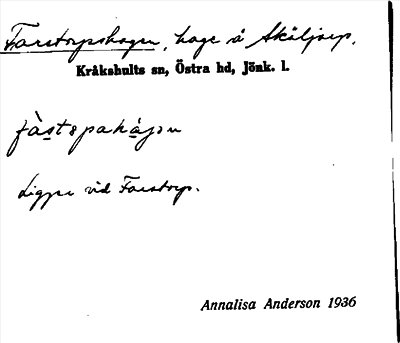 Farstorpshagen, hage å Sköljarp,
Kråkshults sn, Östra hd, Jönk. l.
fàstspahàgən
Ligger vid Farstorp.
Annalisa Anderson 1936